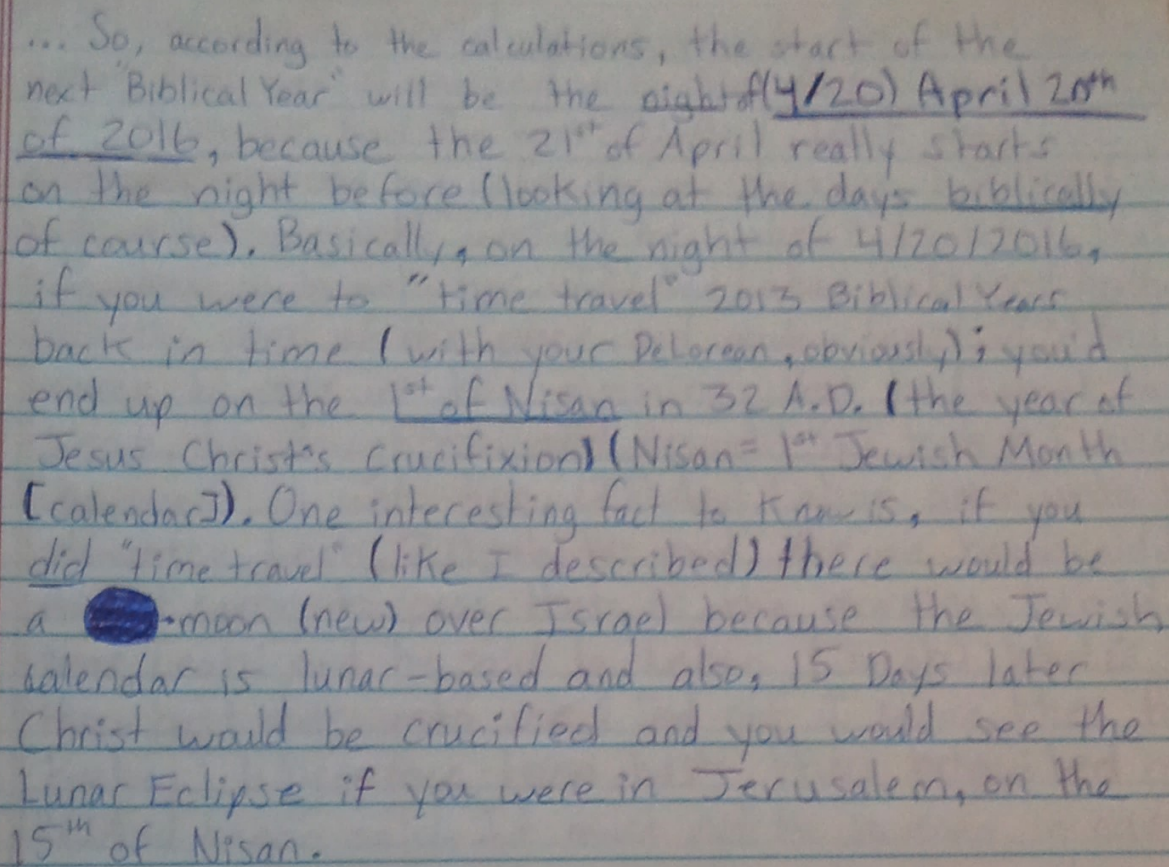 ... So, according to the calculations, the start of the
next "Biblical Year" will be the night of (4/20) April 20th
of 2016, because the 21st of April really starts
on the night before (looking at the days biblically
of course). Basically, on the night of 4/20/2016,
if you were to "time travel" 2013 Biblical Years
back in time (with your DeLorean, obviously); you'd
end up on the 1st of Nisan in 32 A.D. (the year of
Jesus Christ's Crucifixion) (Nisan= 1st Jewish Month
[calendar]). One interesting fact to know is, if you
did "time travel" (like I described) there would be
a -moon (new) over Israel because the Jewish
calendar is lunar-based and also, 15 Days later
Christ would be crucified and you would see the
Lunar Eclipse if you were in Jerusalem, on the
15th of Nisan.